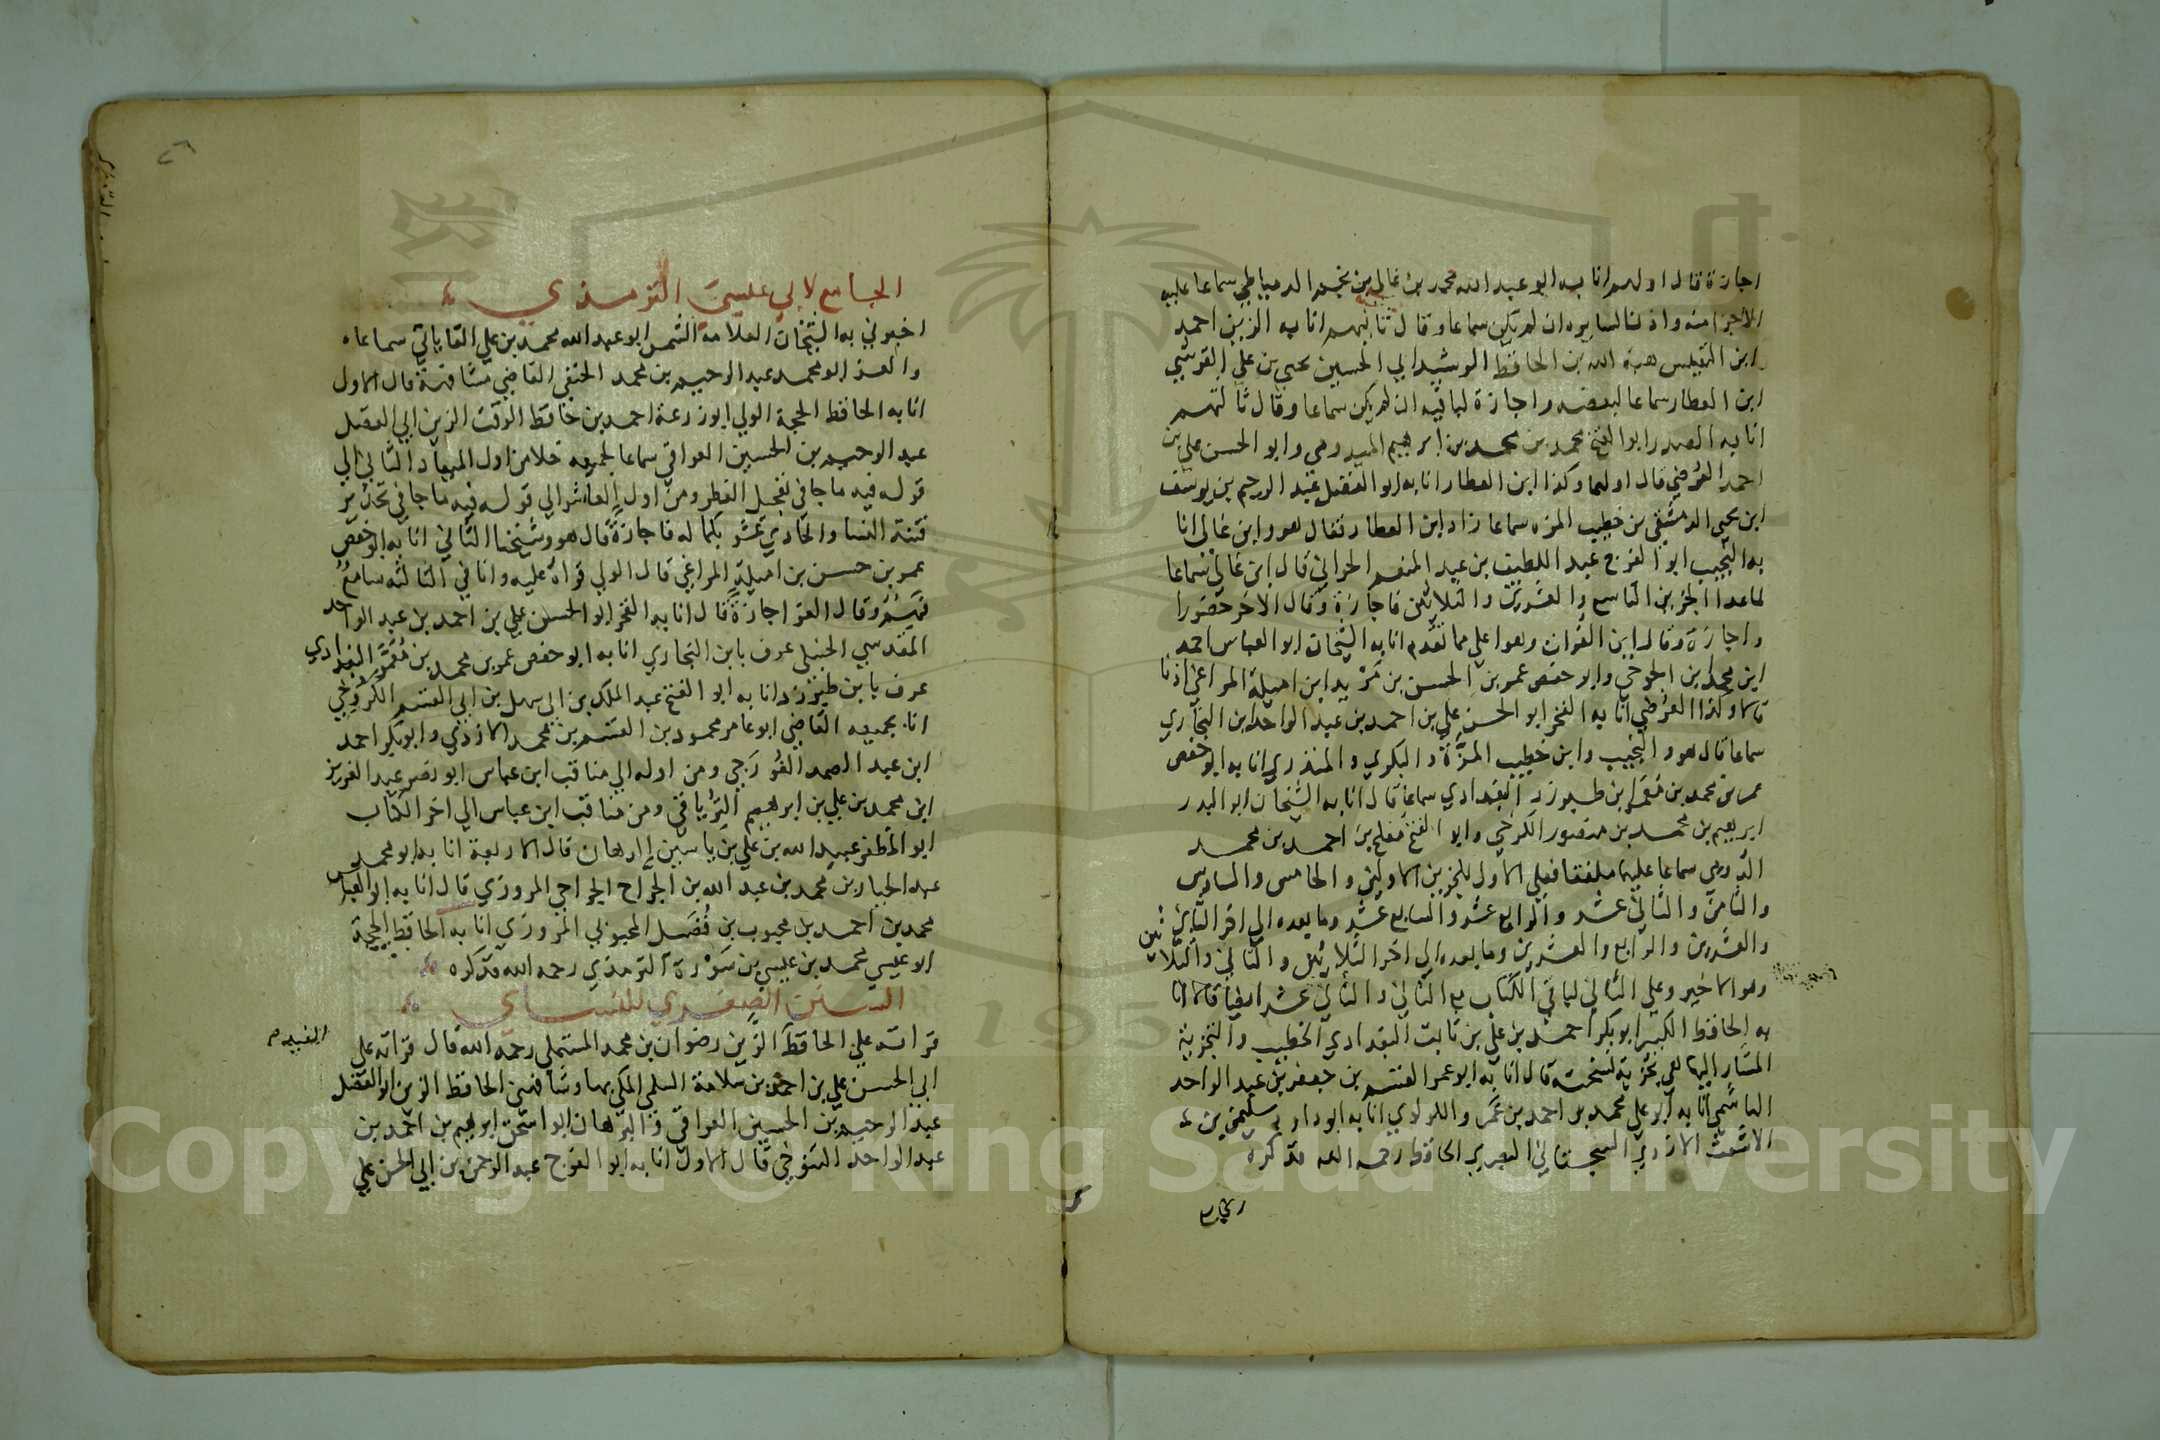 اجازة قال اولهم انا به ابو عبد الله محمد بن غالي بن نجم الدمياطي سماعا عليه
لاجزا منه واذنا لسايره ان لم يكن سماعا وقال ثانيهم انا به الزين احمد
ابن النفيس هبة الله بن الحافظ الرشيد ابي الحسين يحيى بن علي القرشي
ابن العطار سماعا لبعضه واجازة لباقيه ان لم يكن سماعا وقال ثالثهم
انا به الصدر ابو الفتح محمد بن محمد بن ابرهيم الميدومي وابو الحسن علي بن
احمد العرضي قال اولهما وكذا ابن العطار انا به ابو الفضل عبد الرحيم بن يوسف
ابن يحيى الدمشقي بن خطيب المزه سماعا زاد ابن العطار فقال هو وابن غالي انا
به النجيب ابو الفرج عبد اللطيف بن عبد المنعم الحراني قال ابن غالي سماعا
لما عدا الجزين التاسع والعشرين والثلاثين فاجازة وقال الاخر حضورا
واجازة وقال ابن الفرات وهو اعلى مما تقدم انا به الشيخان ابو العباس احمد
ابن محمد ابن الجوخي وابو حفص عمر بن الحسن بن مزيد ابن اميلة المراغي اذنا
قالا وكذا العرضي انا به الفخر ابو الحسن علي بن احمد بن عبد الواحد ابن البخاري
سماعا قال هو والنجيب وابن خطيب المزة والبكري والمنذري انا به ابو حفص
عمر بن محمد بن معمر ابن طبرزد البغدادي سماعا قال انا به الشيخان ابو البدر
ابرهيم بن محمد بن منصور الكرخي وابو الفتح مفلح بن احمد بن محمد
الدومي سماعا عليهما ملفقا فعلى الاول للجزين الاولين والخامس والسادس
والثامن والثاني عشر والرابع عشر والسابع عشر وما بعده الى اخر الثاني
والعشرين والرابع والعشرين وما بعده الى اخر الثلاثين والثاني والثلاثين
وهو الاخير وعلى الثاني لباقي الكتاب مع الثاني والثاني عشر ايضا قالا انا
به الحافظ الكبير ابو بكر احمد بن علي بن ثابت البغدادي الخطيب والتجزية
المشار اليها هي تجزية نسخته قال انا به ابو عمر القسم بن جعفر بن عبد الواحد
الهاشمي انا به ابو علي محمد بن احمد بن عمرو اللولوي انا به ابو داود سليمن بن
الاشعث الازدي السجستاني البصري الحافظ رحمه الله فذكره
الجامع لابي عيسى الترمذي
اخبرني به الشيخان العلامة الشمس ابو عبد الله محمد بن علي القاياتي سماعا
والعز ابو محمد عبد الرحيم بن محمد الحنفي القاضي مشافهة قال الاول
انا به الحافظ الحجة الولي ابو زرعة احمد بن حافظ الوقت الزين ابي الفضل
عبد الرحيم بن الحسين العراقي سماعا لجميعه خلا من اول الميعاد الثاني الى
قوله فيه ما جا في تعجيل الفطر ومن اول العاشر الى قوله فيه ما جا في تحذير
فتنة النسا والحادي عشر بكماله فاجازة قال هو وشيخنا الثاني انا به ابو حفص
عمر بن حسن بن اميلة المراغي قال الولي قراة عليه وانا في الثالثة سامع
وقال العز اجازة قال انا به الفخر ابو الحسن علي بن احمد بن عبد الواحد
المقدسي الحنبلي عرف بابن البخاري انا به ابو حفص عمر بن محمد بن معمر البغدادي
عرف بابن طبرزد انا به ابو الفتح عبد الملك بن ابي سهل بن ابي القسم الكروخي
انا بجميعه القاضي ابو عامر محمود بن القسم بن محمد الازدي وابو بكر احمد
ابن عبد الصمد الغورجي ومن اوله الى مناقب ابن عباس ابو نصر عبد العزيز
ابن محمد بن علي بن ابرهيم الترياقي ومن مناقب ابن عباس الى اخر الكتاب
ابو المظفر عبيد الله بن علي بن ياسين الدهان قال الاربعة انا به ابو محمد
عبد الجبار بن محمد بن عبد الله بن الجراح الجراحي المروزي قال انا به ابو العباس
محمد بن احمد بن محبوب بن فضيل المحبوبي المروزي انا به الحافظ الحجة
ابو عيسى محمد بن عيسى بن سورة الترمذي رحمه الله فذكره
السنن الصغرى للنسائي
قراته على الحافظ الزين رضوان بن محمد المستملي رحمه الله قال قراته على
ابي الحسن علي بن احمد بن سلامة السلمي المكي بها وشافهني الحافظ الزين ابو الفضل
عبد الرحيم بن الحسين العراقي والبرهان ابو اسحق ابرهيم بن احمد بن
عبد الواحد التنوخي قال الاول انا به ابو الفرج عبد الرحمن بن ابي الحسن علي
Copyright © King Saud University
195